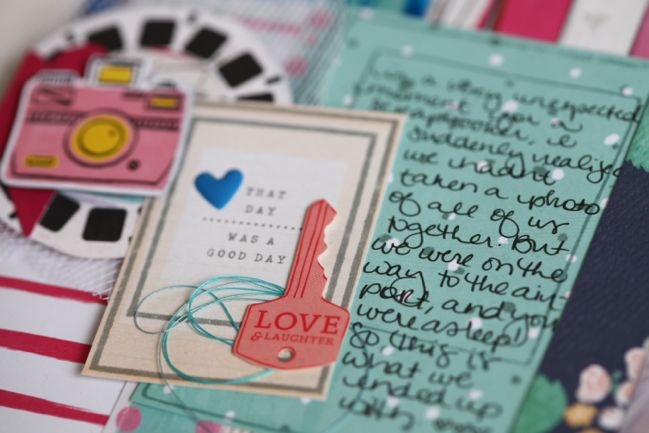 THAT
DAY
WAS A
GOOD DAY
LOVE
& LAUGHTER
very unexpected
moment
you a
scrapbooker, e
suddenly realised
we hadnt
taken a photo
of all of us
together. But
we were on the
way to the air-
port, and you
were asleep!
So this is
what we
ended up